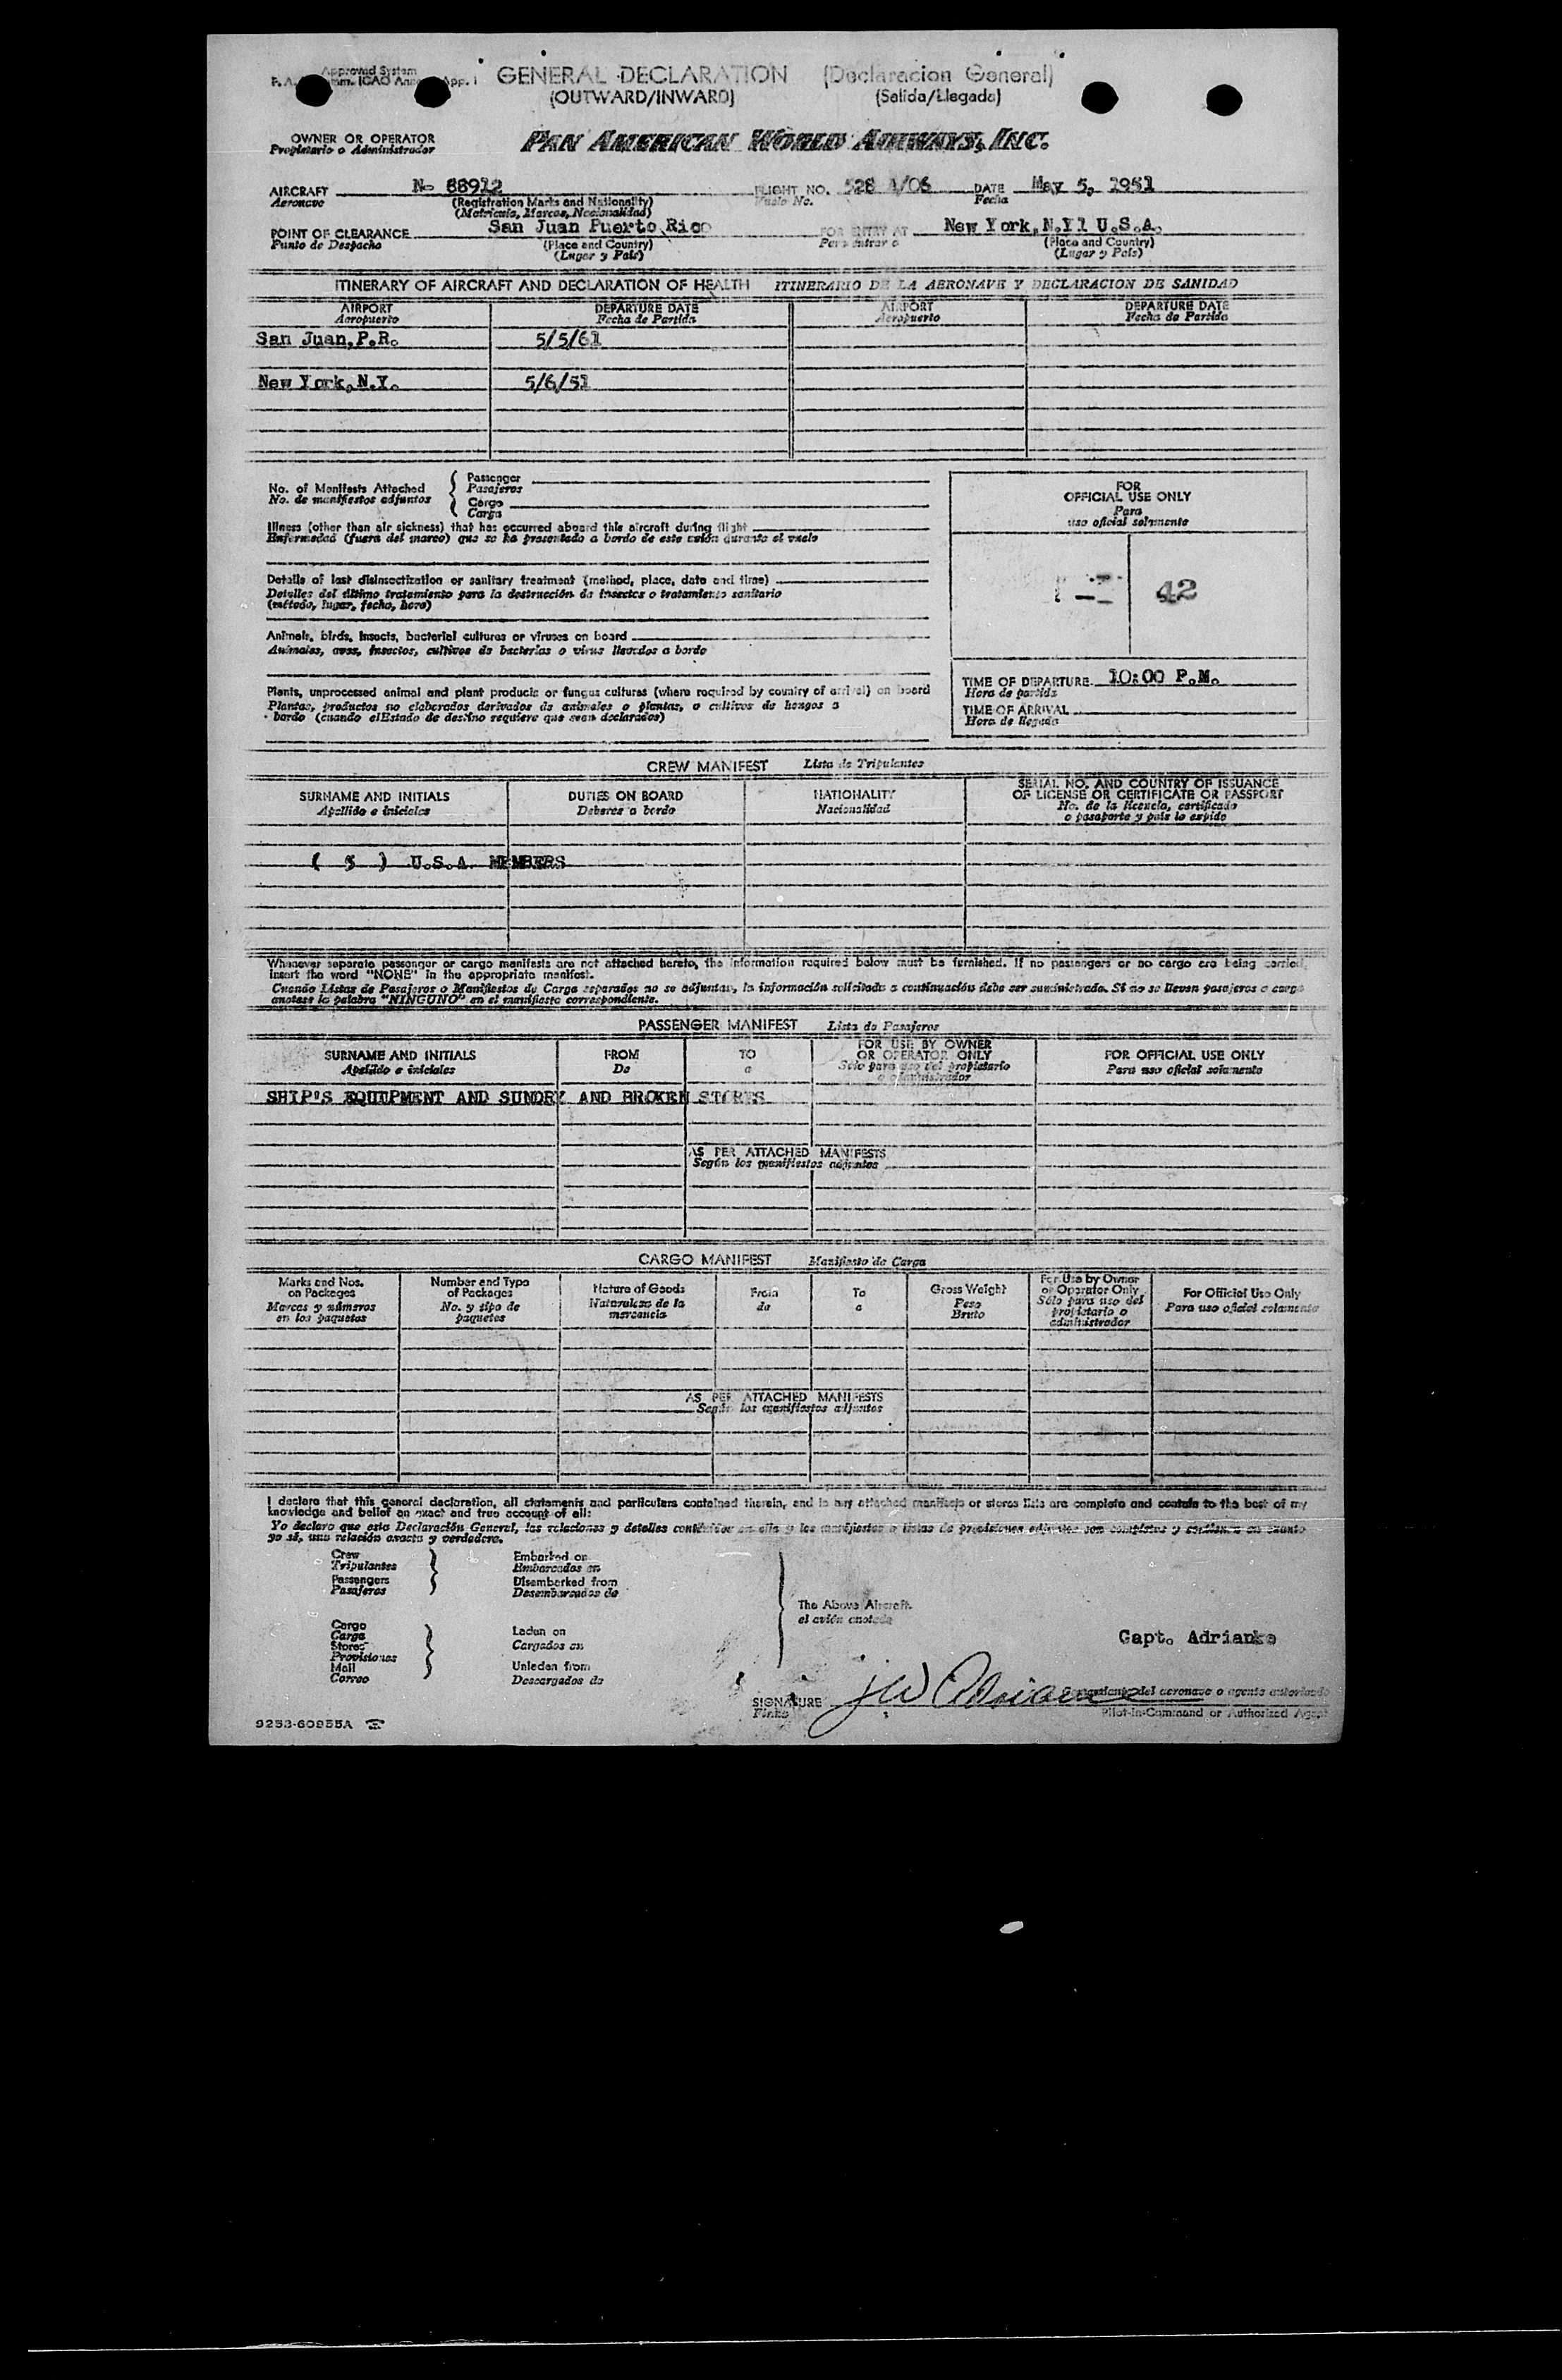 Approved System
GENERAL DECLARATION (Declaracion General)
(OUTWARD/INWARD) (Salida/Llegada)
OWNER OR OPERATOR PAN AMERICAN WORLD AIRWAYS, INC.
Propietario o Administrador
AIRCRAFT No 88912 FLIGHT NO. 528 /06 DATE May 5, 1951
Aeronave (Registration Marks and Nationality) Vuelo No. Fecha
(Matricula, Marcas, Nacionalidad)
POINT OF CLEARANCE San Juan Puerto Rico FOR ENTRY AT New York, N.Yl U.S.A.
Punto de Despacho (Place and Country) Para entrar a (Place and Country)
(Lugar y País) (Lugar y País)
ITINERARY OF AIRCRAFT AND DECLARATION OF HEALTH ITINERARIO DE LA AERONAVE Y DECLARACION DE SANIDAD
AIRPORT DEPARTURE DATE AIRPORT DEPARTURE DATE
Aeropuerto Fecha de Partida Aeropuerto Fecha de Partida
San Juan,P.R. 5/5/61
New York,N.Y. 5/6/51
No. of Manifests Attached
No. de manifiestos adjuntos
Passenger
Pasajeros
Cargo
Carga
Illness (other than air sickness) that has occurred aboard this aircraft during flight
Enfermedad (fuera del mareo) que se ha presentado a bordo de este avión durante el vuelo
Details of last disinsectization or sanitary treatment (method, place, date and time)
Detalles del último tratamiento para la destrucción de insectos o tratamiento sanitario
(método, lugar, fecha, hora)
Animals, birds, insects, bacterial cultures or viruses on board
Animales, aves, insectos, cultivos de bacterias o virus llevados a bordo
Plants, unprocessed animal and plant products or fungus cultures (where required by country of arrival) on board
Plantas, productos no elaborados derivados de animales o plantas, o cultivos de hongos a
bordo (cuando el Estado de destino requiere que sean declarados)
FOR
OFFICIAL USE ONLY
Para
uso oficial solamente
42
TIME OF DEPARTURE 10:00 P.M.
Hora de partida
TIME OF ARRIVAL
Hora de llegada
CREW MANIFEST Lista de Tripulantes
SURNAME AND INITIALS DUTIES ON BOARD NATIONALITY SERIAL NO. AND COUNTRY OF ISSUANCE
OF LICENSE OR CERTIFICATE OR PASSPORT
Apellido e iniciales Deberes a bordo Nacionalidad No. de la licencia, certificado
o pasaporte y país lo expido
( 5 ) U.S.A. MEMBERS
Whenever separate passenger or cargo manifests are not attached hereto, the information required below must be furnished. If no passengers or no cargo are being carried,
insert the word "NONE" in the appropriate manifest.
Cuando Listas de Pasajeros o Manifiestos de Carga separados no se adjuntan, la información solicitada a continuación debe ser suministrada. Si no se llevan pasajeros o carga
anótese la palabra "NINGUNO" en el manifiesto correspondiente.
PASSENGER MANIFEST Lista de Pasajeros
SURNAME AND INITIALS FROM TO FOR USE BY OWNER
OR OPERATOR ONLY FOR OFFICIAL USE ONLY
Apellido e iniciales De a Sólo para uso del propietario
o administrador Para uso oficial solamente
SHIP'S EQUIPMENT AND SUNDRY AND BROKEN STORES
AS PER ATTACHED MANIFESTS
Según los manifiestos adjuntos
CARGO MANIFEST Manifiesto de Carga
Marks and Nos.
on Packages
Marcas y números
en los paquetes
Number and Type
of Packages
No. y tipo de
paquetes
Nature of Goods
Naturaleza de la
mercancía
From
de
To
a
Gross Weight
Peso
Bruto
For Use by Owner
or Operator Only
Sólo para uso del
propietario o
administrador
For Official Use Only
Para uso oficial solamente
AS PER ATTACHED MANIFESTS
Según los manifiestos adjuntos
I declare that this general declaration, all statements and particulars contained therein, and in any attached manifests or stores lists are complete and contain to the best of my
knowledge and belief an exact and true account of all:
Yo declaro que esta Declaración General, las relaciones y detalles contenidos en ella y los manifiestos o listas de provisiones adjuntos son completos y contienen en cuanto
yo sé, una relación exacta y verdadera.
Crew
Tripulantes
Passengers
Pasajeros
Embarked on
Embarcados en
Disembarked from
Desembarcados de
Cargo
Carga
Stores
Provisiones
Mail
Correo
Laden on
Cargados en
Unladen from
Descargados de
The Above Aircraft.
el avión anotado
Capt. Adrianke
SIGNATURE
Firma
Comandante del aeronave o agente autorizado
Pilot-in-Command or Authorized Agent
9253-60955A